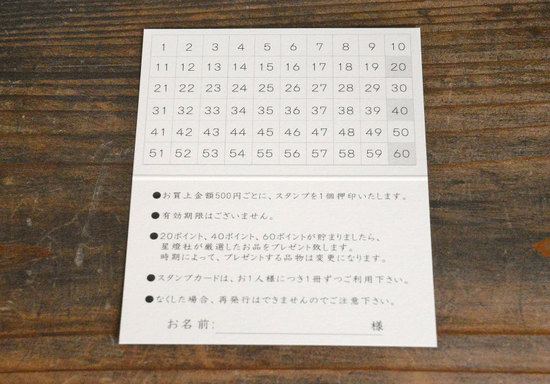 1 2 3 4 5 6 7 8 9 10
11 12 13 14 15 16 17 18 19 20
21 22 23 24 25 26 27 28 29 30
31 32 33 34 35 36 37 38 39 40
41 42 43 44 45 46 47 48 49 50
51 52 53 54 55 56 57 58 59 60
●お買上金額500円ごとに、スタンプを1個押印いたします。
●有効期限はございません。
●20ポイント、40ポイント、60ポイントが貯まりましたら、
星燈社が厳選したお品をプレゼント致します。
時期によって、プレゼントする品物は変更になります。
●スタンプカードは、お1人様につき1冊ずつご利用下さい。
●なくした場合、再発行はできませんのでご注意下さい。
お名前: 様